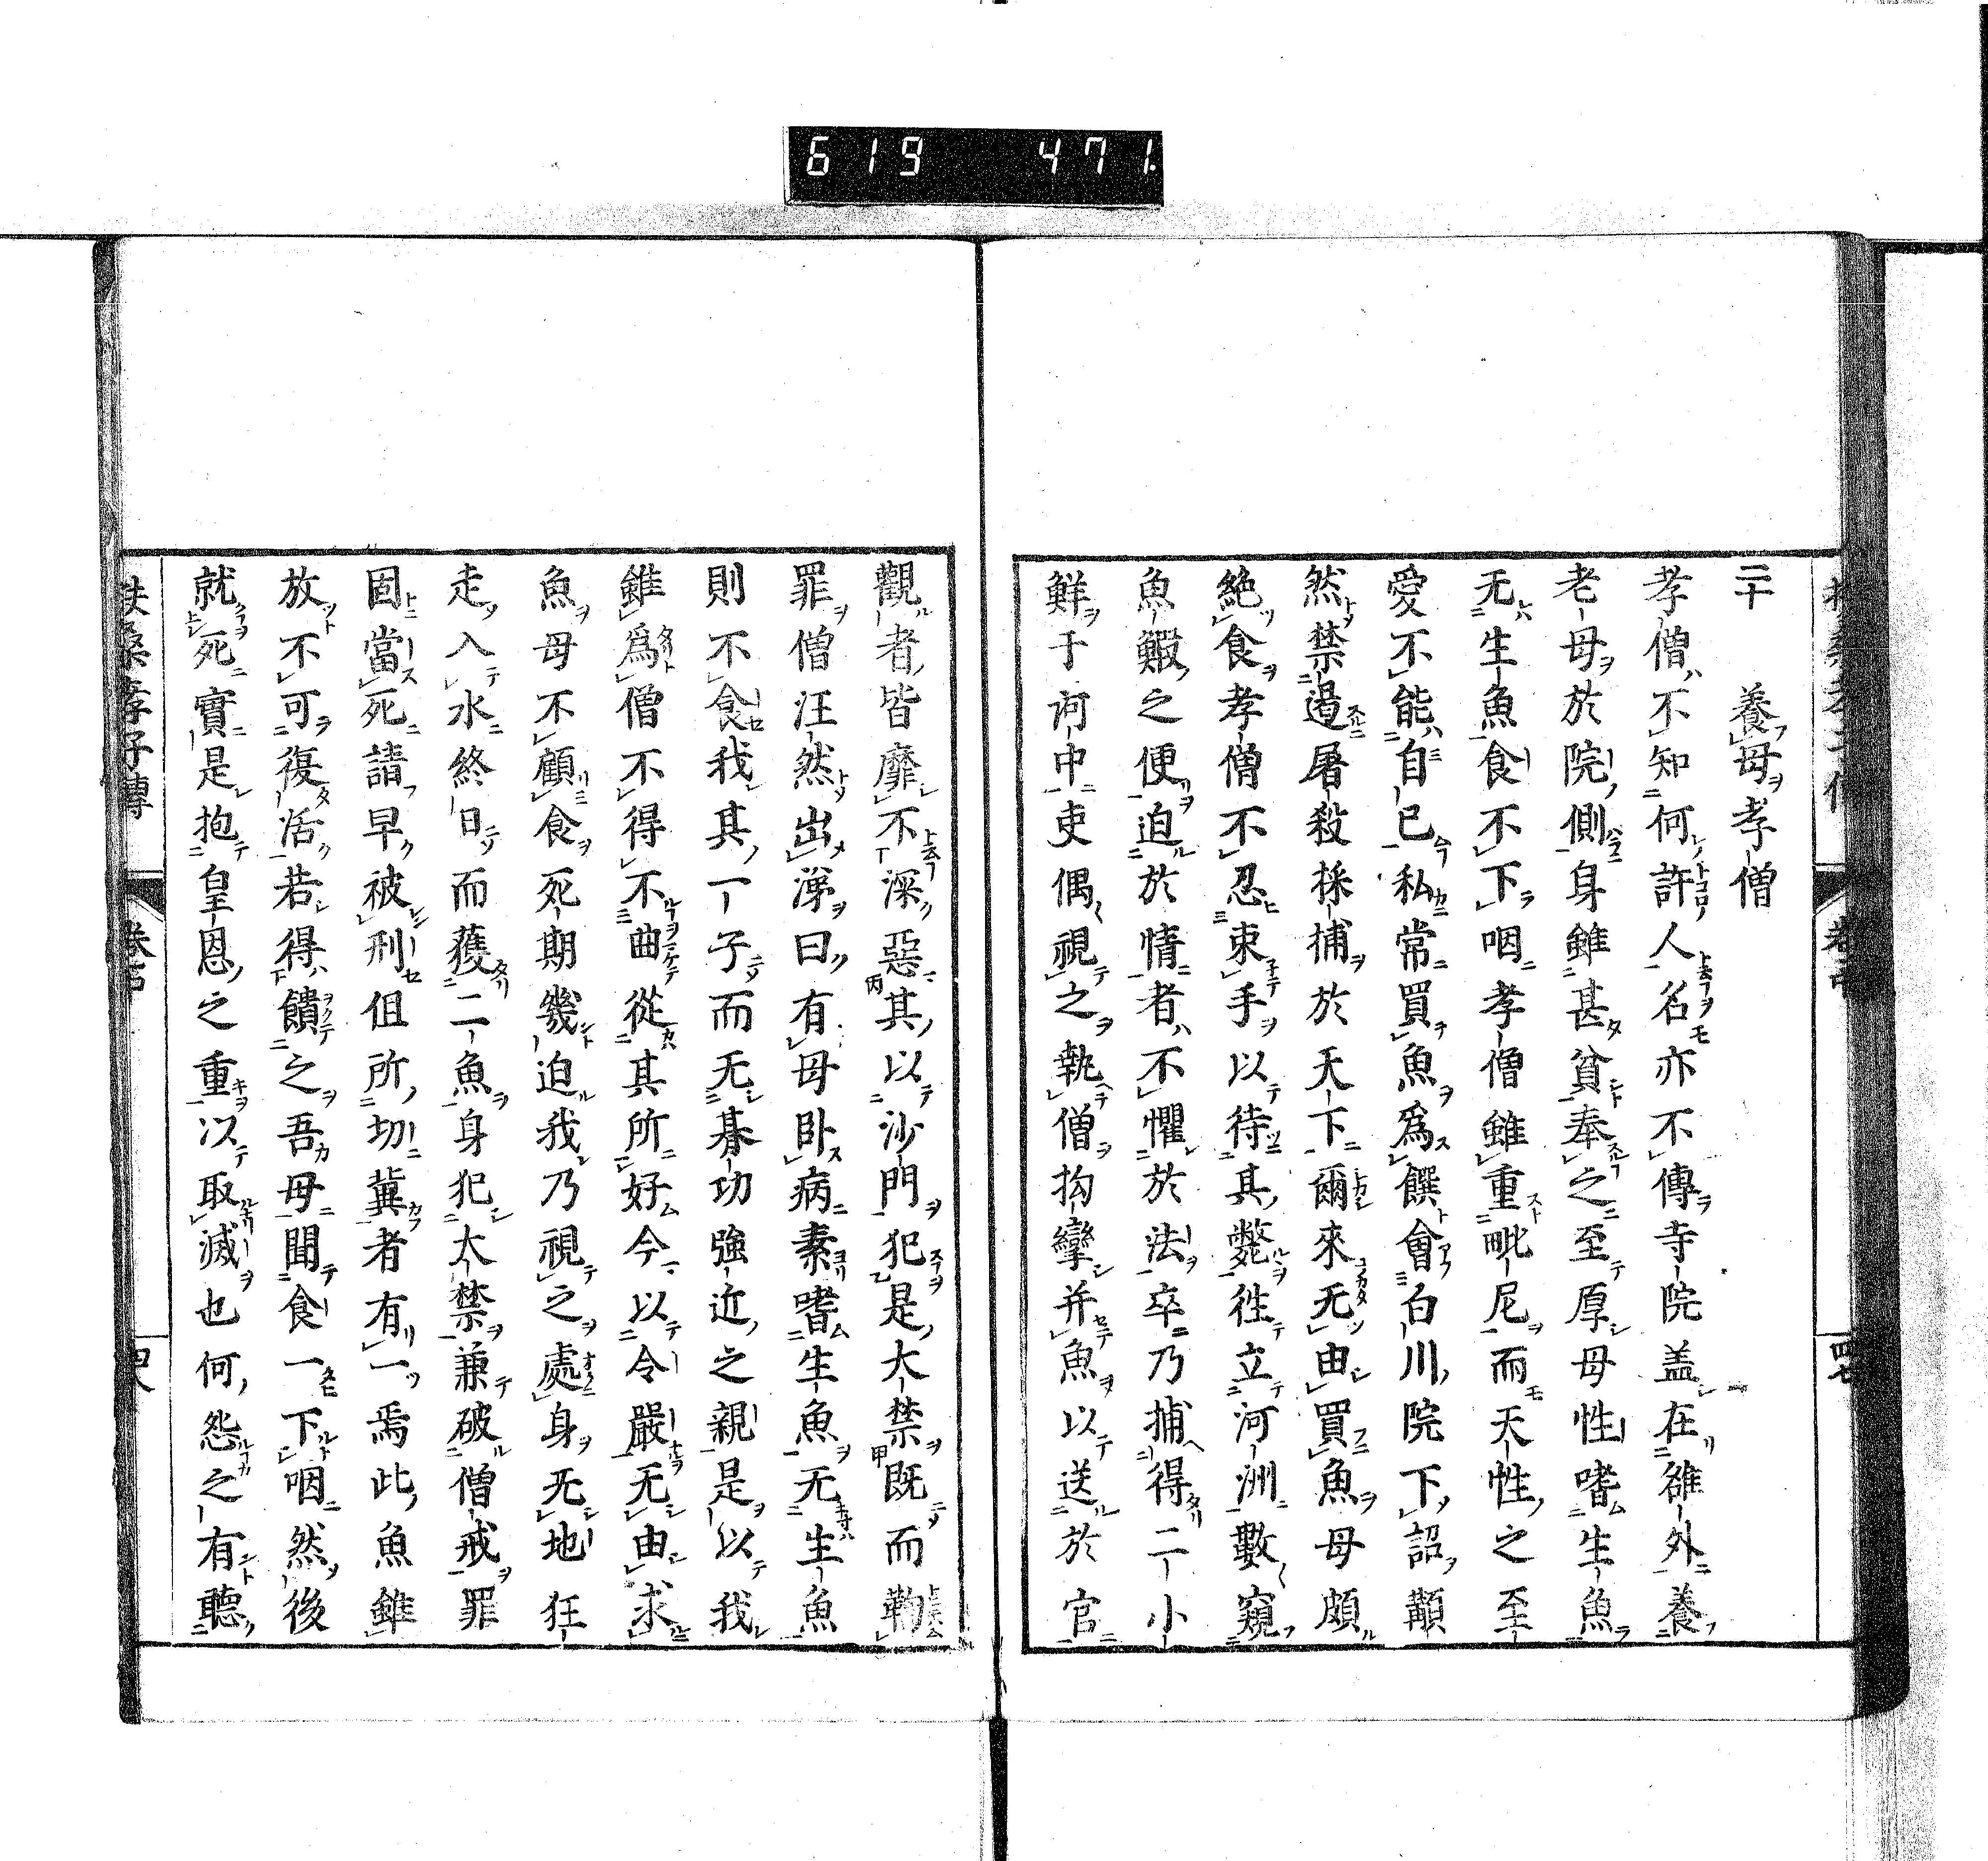 二十　養母孝僧
孝僧不知何許人名亦不傳寺院盖在雒外養
老母於院側身雖甚貧奉之至厚母性嗜生魚
无生魚食不下咽孝僧雖重毗尼而天性之至
愛不能自已私常買魚爲饌會白川院下詔顓
然禁遏屠殺採捕於天下爾來无由買魚母頗
絶食孝僧不忍束手以待其斃徃立河洲數窺
魚鰕之便迫於情者不懼於法卒乃捕得二小
鮮于河中吏偶視之執僧拘攣并魚以送於官
觀者皆靡不深惡其以沙門犯是大禁既而鞫
罪僧汪然出涕曰有母卧病素嗜生魚无生魚
則不食我其一子而无朞功強近之親是以我
雖爲僧不得不曲從其所好今以令嚴无由求
魚母不顧食死期幾迫我乃視之處身无地狂
走入水終日而獲二魚身犯大禁兼破僧戒罪
固當死請早被刑但所切冀者有一焉此魚雖
放不可復活若得饋之吾母聞食一下咽然後
就死實是抱皇恩之重以取滅也何怨之有聽
扶桑孝子傳
卷中
四七
619 471.